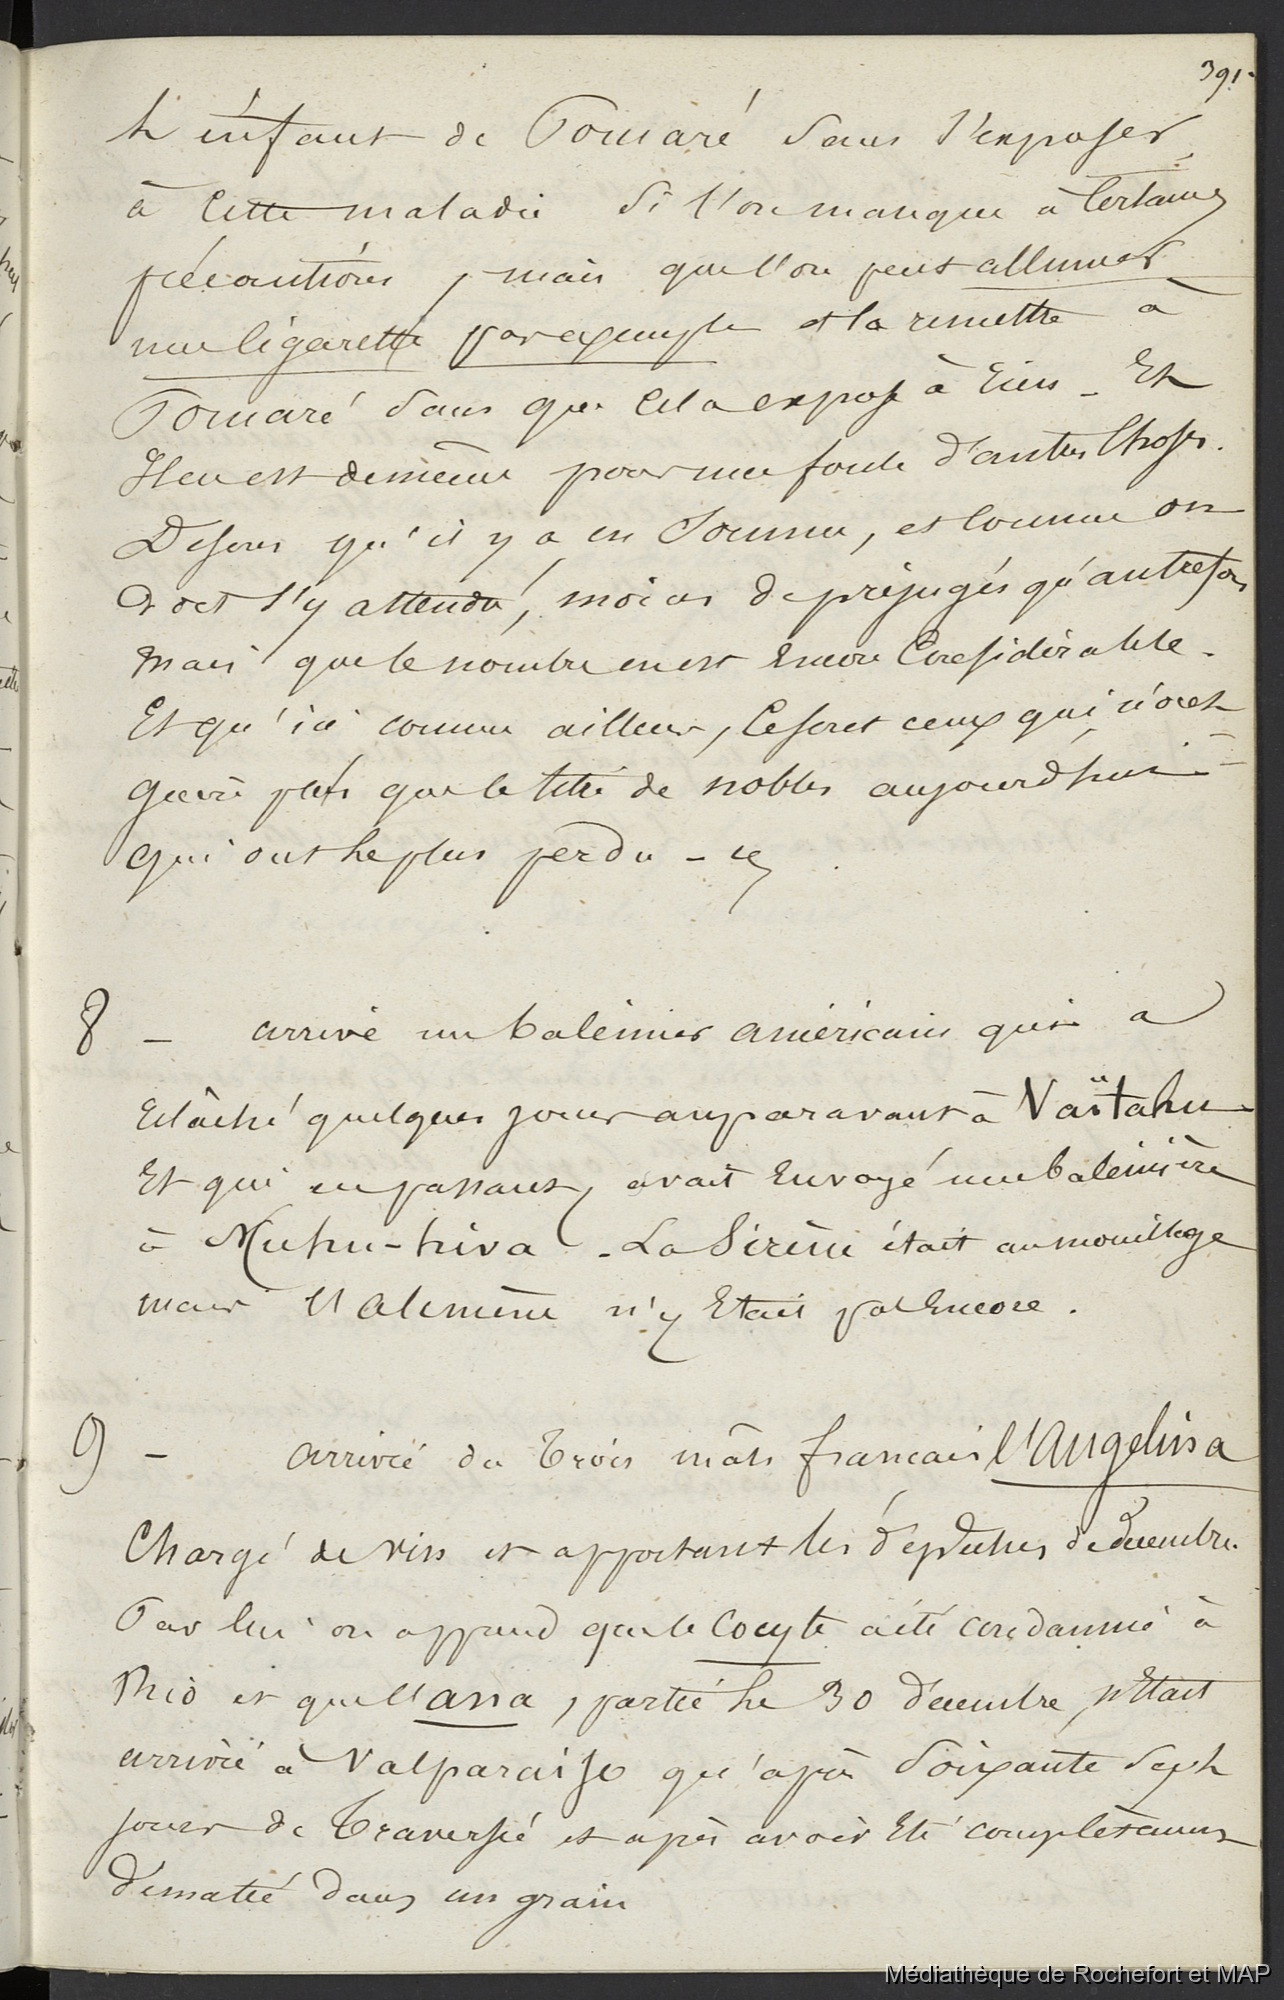 391
L'enfant de Pomaré sans s'exposer
à cette maladie si l'on manque à certaines
précautions, mais que l'on peut allumer
une cigarette par exemple et la remettre à
Pomaré sans que cela expose à rien - Et
Il en est de même pour une foule d'autres choses.
Disons qu'il y a en somme, et comme on
doit s'y attendre, moins de préjugés qu'autrefois
mais que le nombre en est encore considérable -
Et qu'ici comme ailleurs, ce sont ceux qui n'ont
guère plus que le titre de nobles aujourd'hui
qui ont le plus perdu -
8 - arrivé un baleinier américain qui a
relâché quelques jours auparavant à Vaïtahu
Et qui en passant, avait envoyé une baleinière
à Nuhu-hiva. - La Sirène était au mouillage
mais l'Alcmène n'y était pas encore.
9 - arrivée du trois mâts français l'Angelina
Chargé de vin et apportant les dépêches de décembre.
Par lui on apprend que le Cocyte a été condamné à
Rio et que l'anna, partie le 30 décembre, n'était
arrivée à Valparaiso qu'après soixante sept
jours de traversée et après avoir été complètement
démâtée dans un grain
Médiathèque de Rochefort et MAP